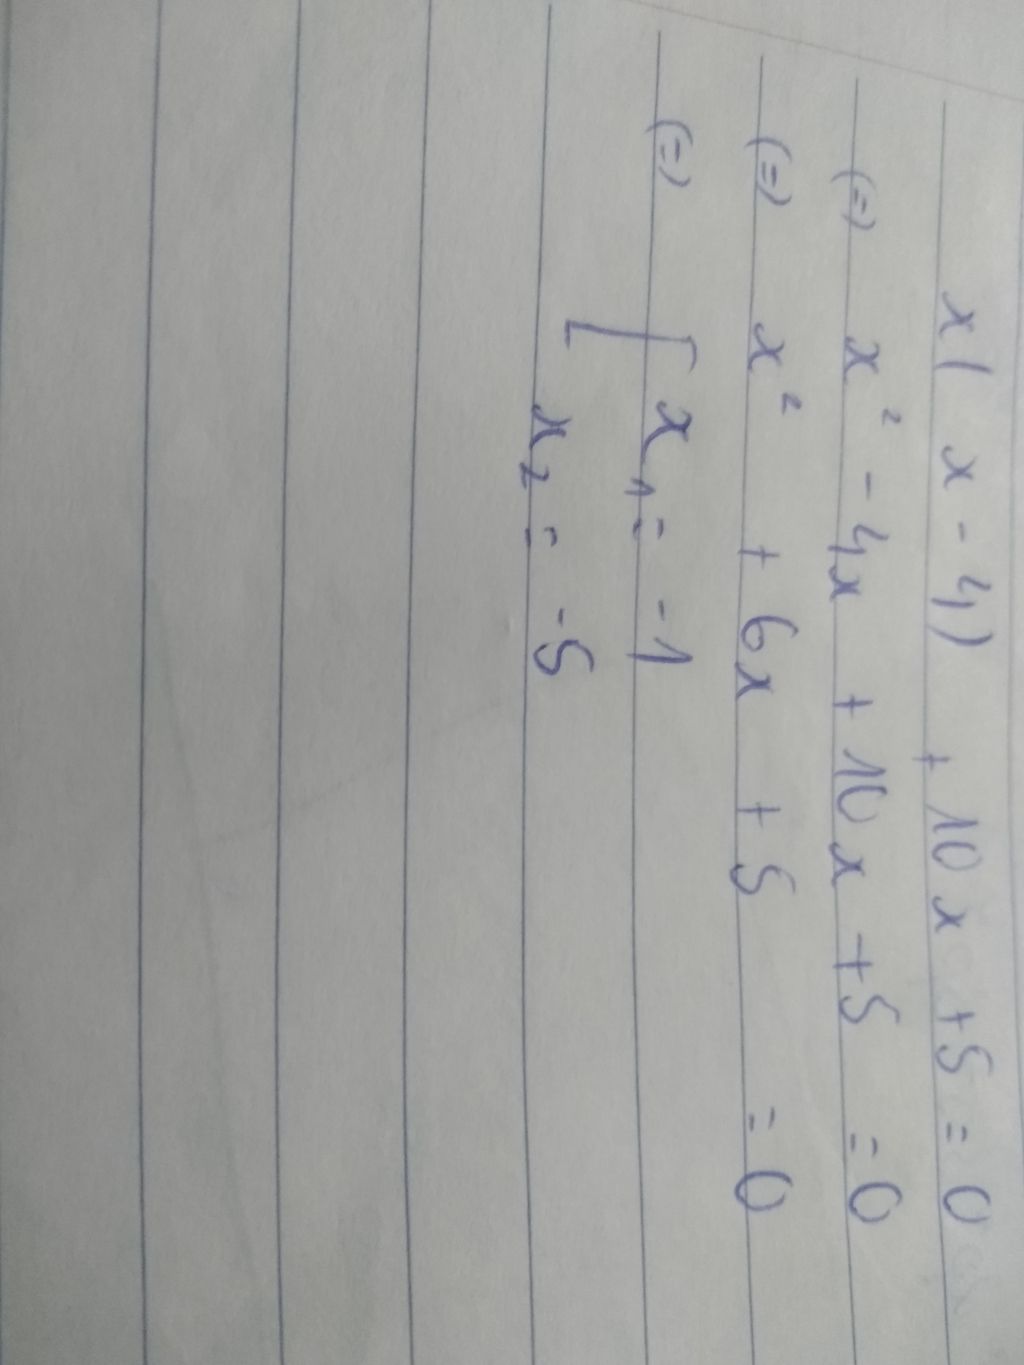 x(x - 4) + 10x + 5 = 0
(=) x² - 4x + 10x + 5 = 0
(=) x² + 6x + 5 = 0
(=) [ x₁ = -1
x₂ = -5